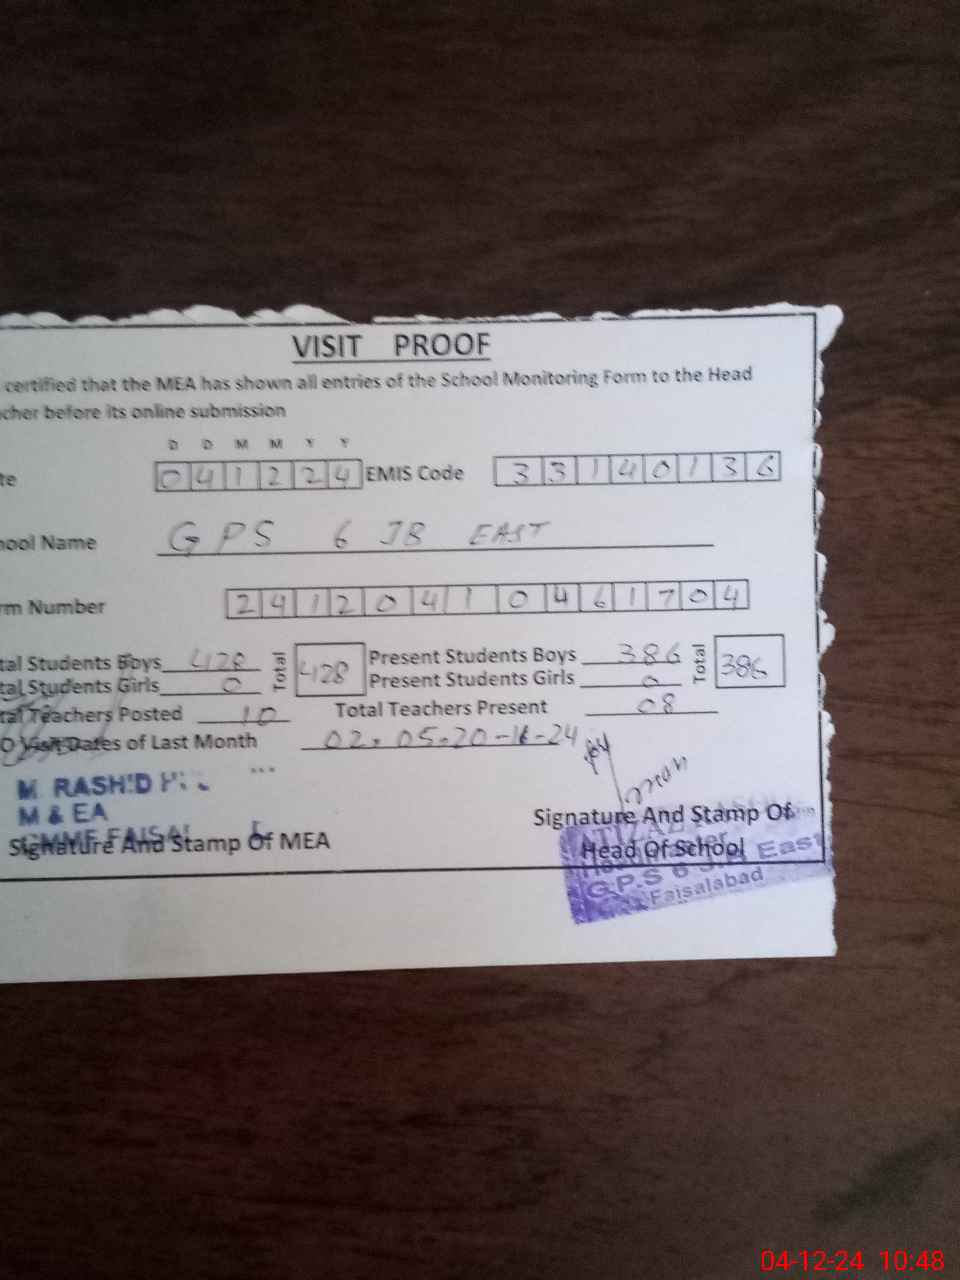 VISIT PROOF
certified that the MEA has shown all entries of the School Monitoring Form to the Head
cher before its online submission
D D M M Y Y
te 041224 EMIS Code 33140136
hool Name GPS 6 JB EAST
rm Number 24120410461704
tal Students Boys 428 Total 428 Present Students Boys 386 Total 386
tal Students Girls 0 Present Students Girls 0
tal Teachers Posted 10 Total Teachers Present 08
O Visit Dates of Last Month 02, 05-20-11-24
M RASHID
M & EA
Signature And Stamp Of MEA
Signature And Stamp Of
Head Of School
G.P.S 6 East
Faisalabad
04-12-24 10:48